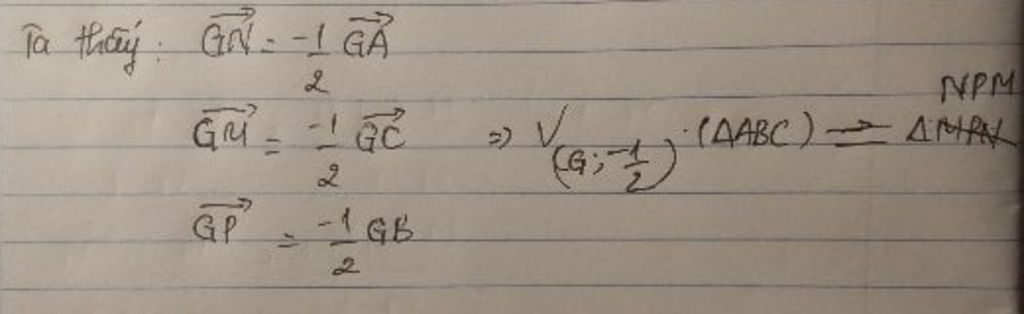 Ta thấy: $\overrightarrow{GN} = \frac{-1}{2} \overrightarrow{GA}$
$\overrightarrow{GM} = \frac{-1}{2} \overrightarrow{GC}$ => $V_{(G; \frac{-1}{2})}$ . (ΔABC) = Δ~~MPN~~ NPM
$\overrightarrow{GP} = \frac{-1}{2} GB$